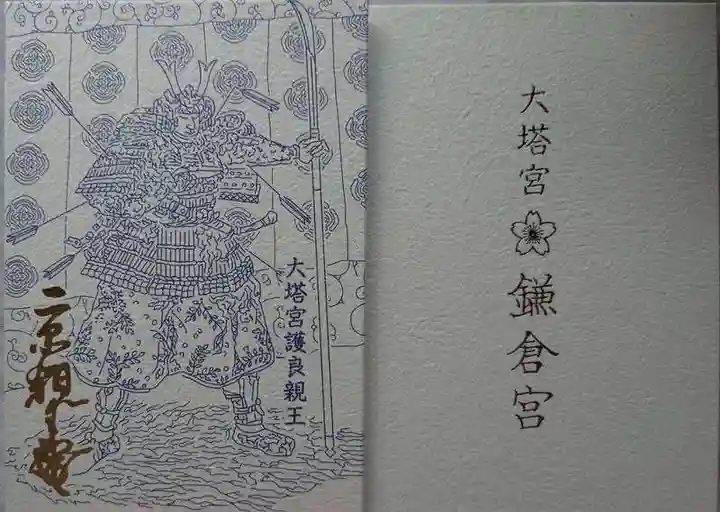 大塔宮護良親王
大塔宮
鎌倉宮